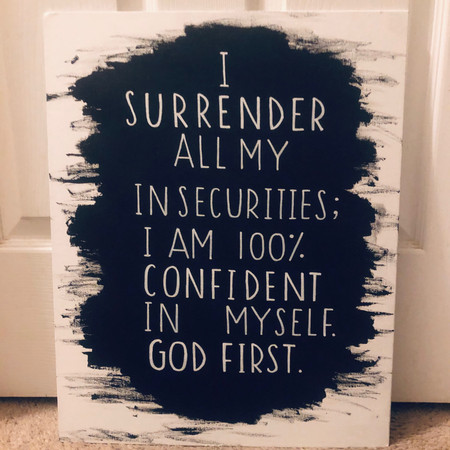 I
SURRENDER
ALL MY
INSECURITIES;
I AM 100%
CONFIDENT
IN MYSELF.
GOD FIRST.